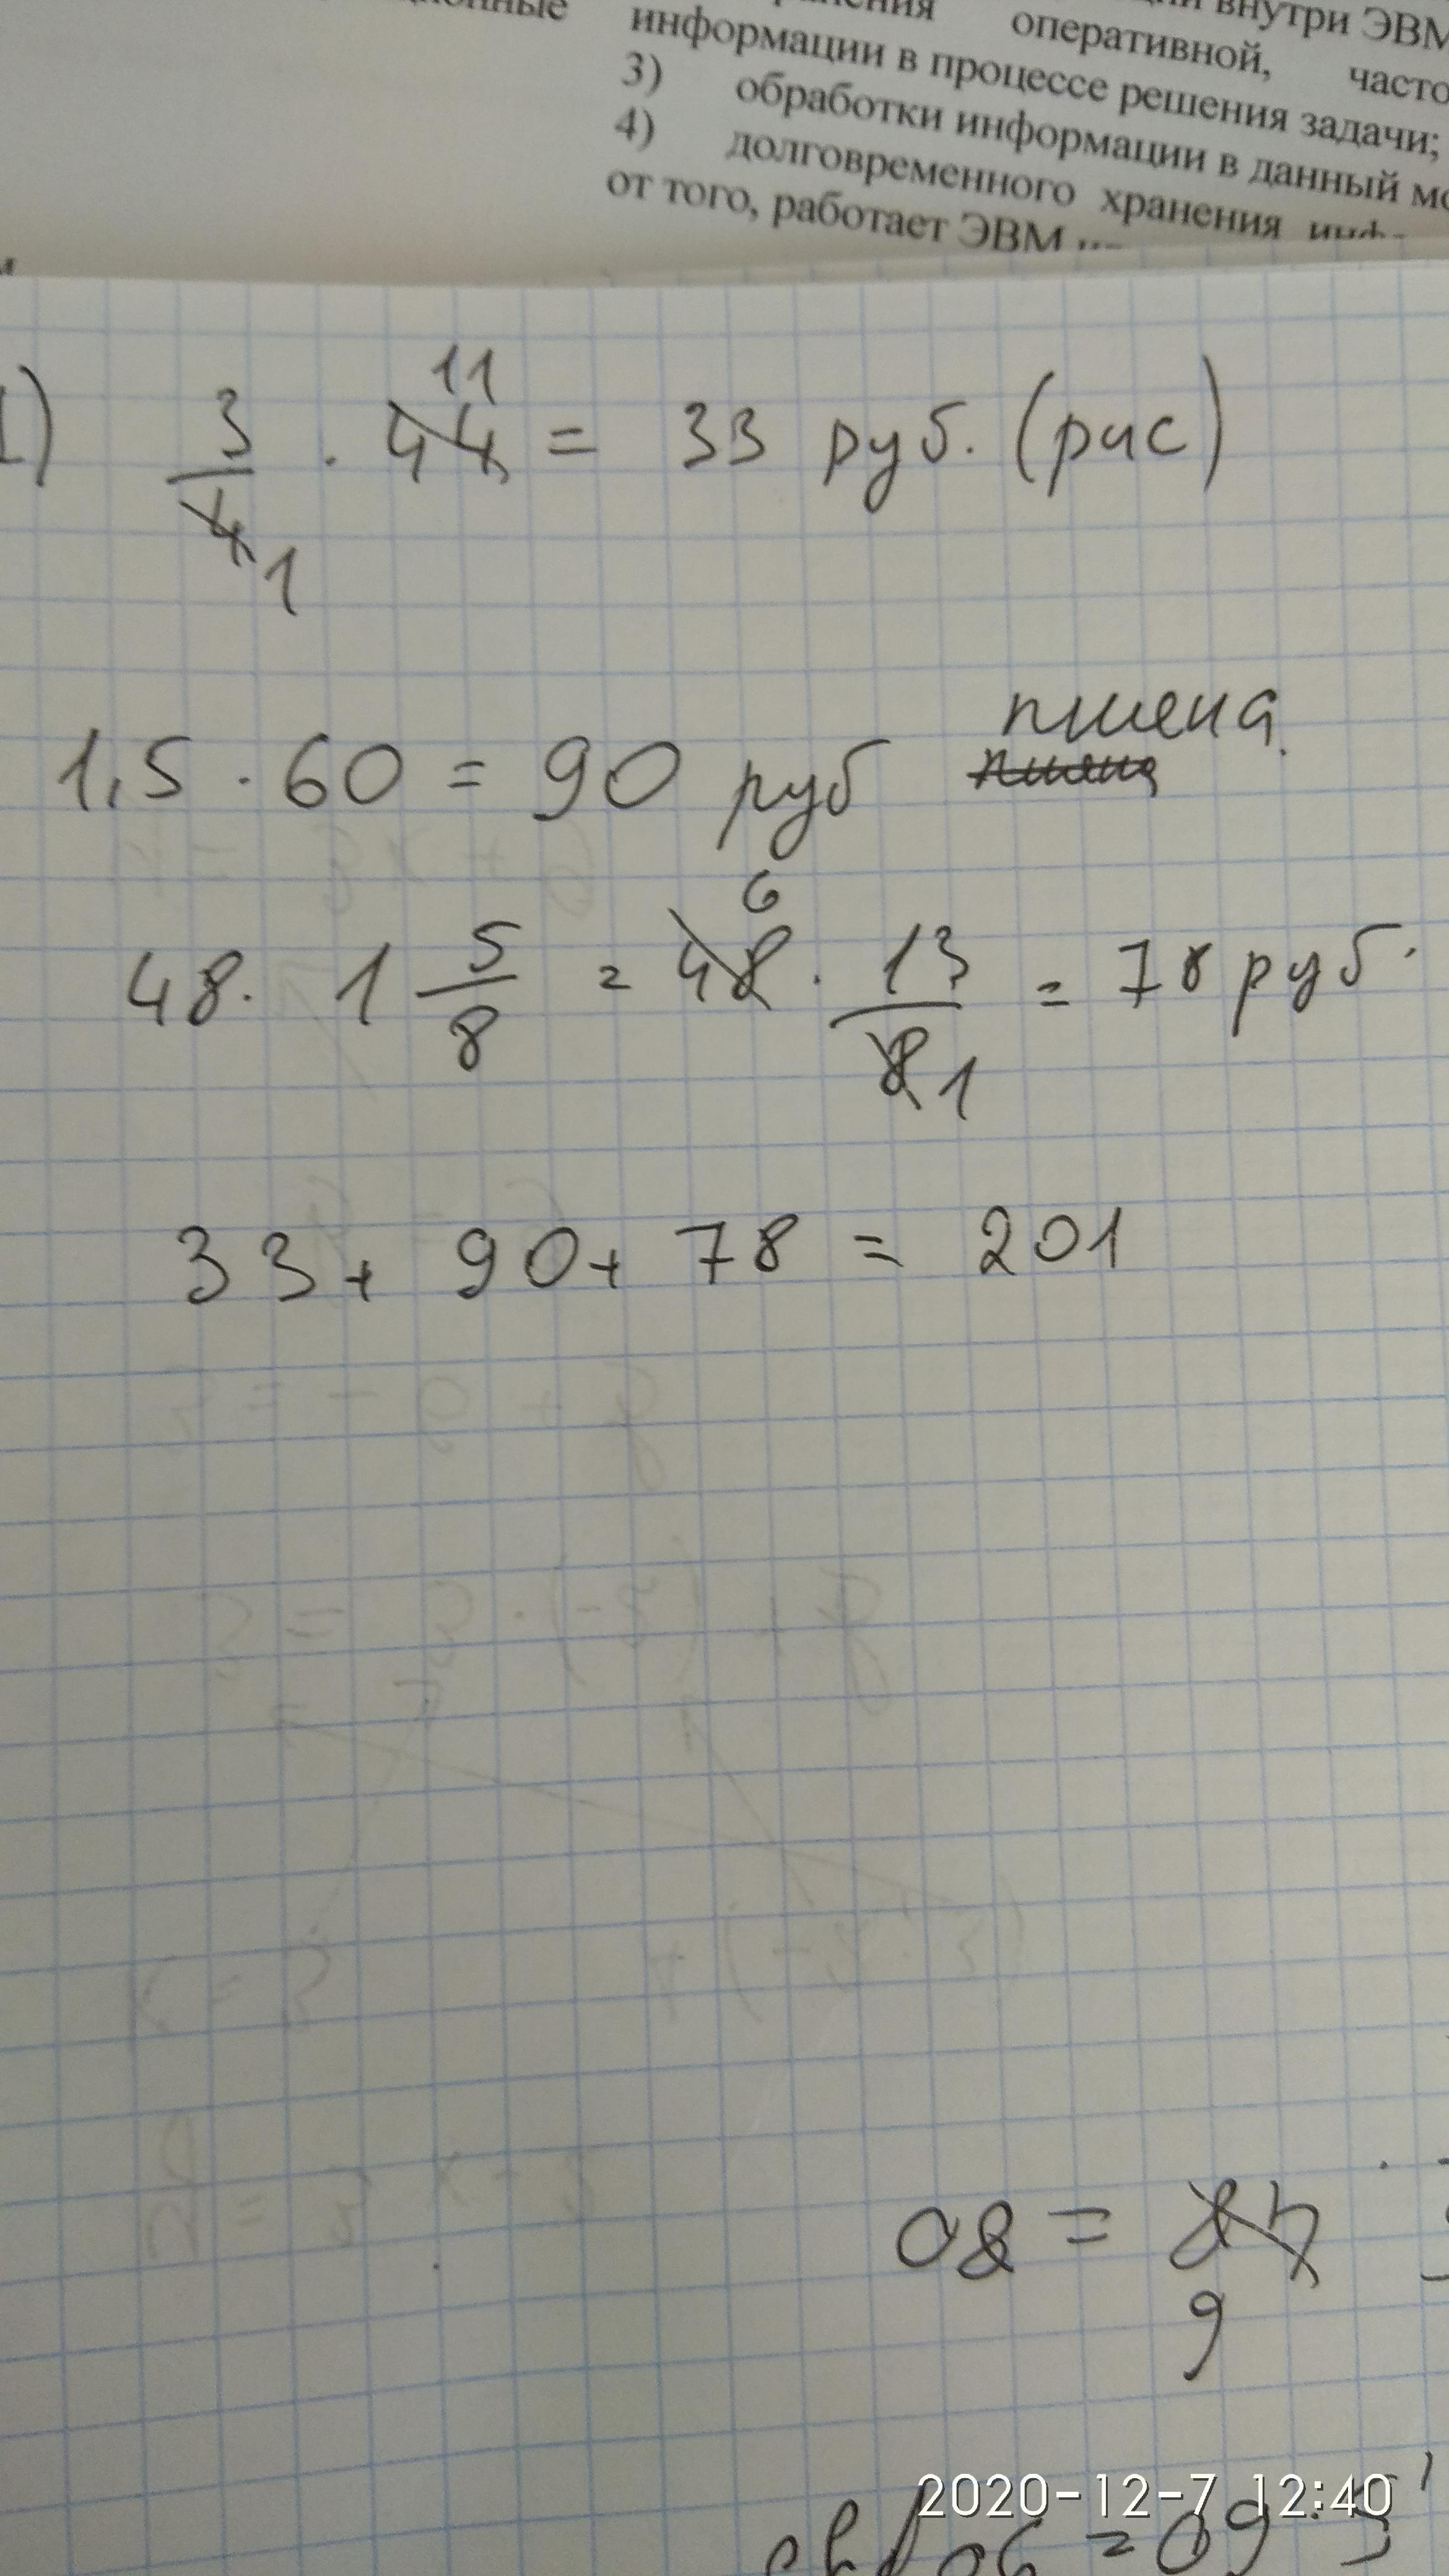 внутри ЭВМ
оперативной, часто
информации в процессе решения задачи;
3) обработки информации в данный
4) долговременного хранения
от того, работает ЭВМ
1) 3/4 1 · 44 11 = 33 руб. (рис)
1,5 · 60 = 90 руб пшена
пшена
48 · 1 5/8 = 48 6 · 13/8 1 = 78 руб.
33 + 90 + 78 = 201
08 =
9
2020-12-7 12:40